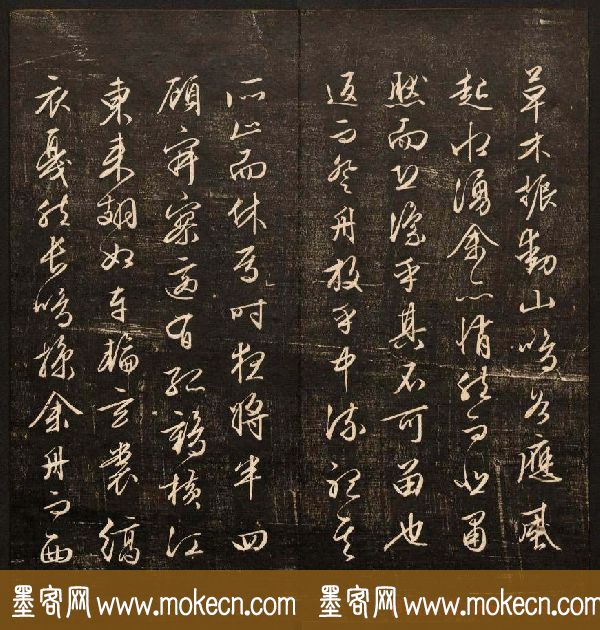 草木振動山鳴谷應風
起水湧余亦悄然而悲肅
然而恐凛乎其不可留也
返而登舟放乎中流聽其
所止而休焉時夜將半四
顧寂寥適有孤鶴橫江
東來翅如車輪玄裳縞
衣戛然長鳴掠余舟而西
墨客网 www.mokecn.com 墨客网 www.mokecn.com